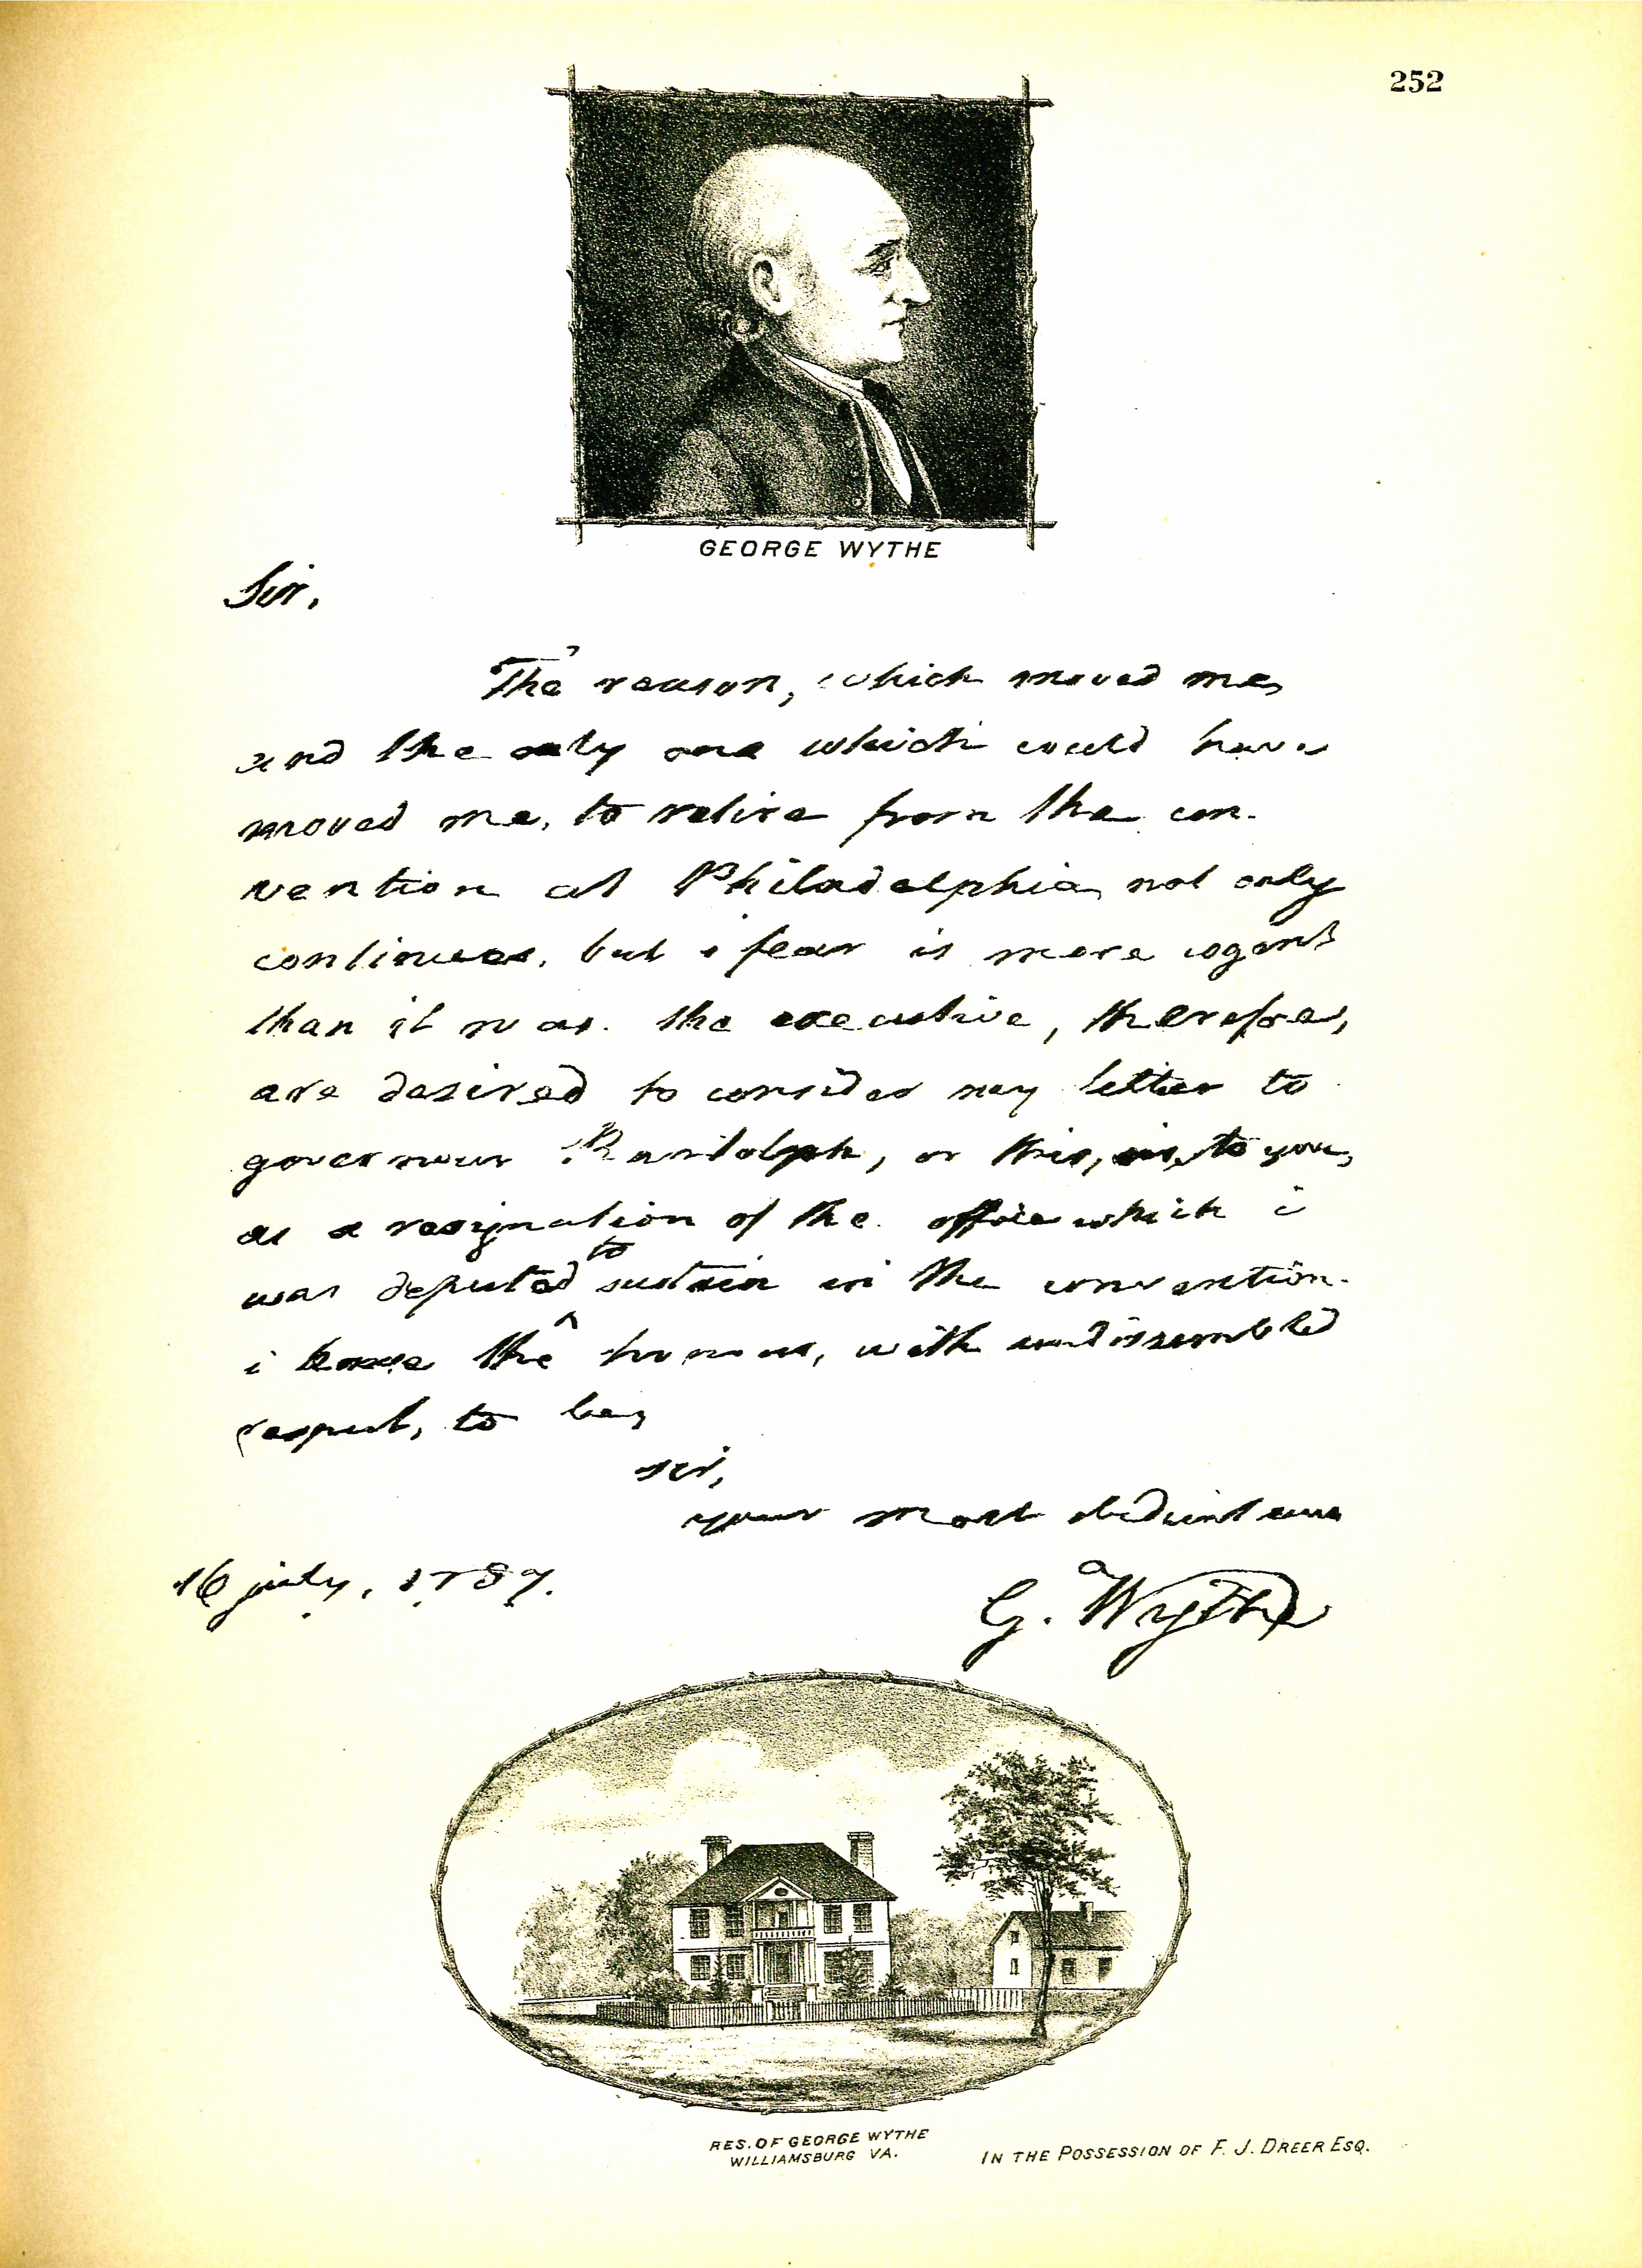 252
GEORGE WYTHE
Sir,
The reason, which moved me,
and the only one which could have
moved me, to retire from the con-
vention at Philadelphia, not only
continues, but i fear is more cogent
than it was. the executive, therefore,
are desired to consider my letter to
governour Randolph, or this, to you,
as a resignation of the office which i
was deputed to sustain in the convention.
i have the honour, with undissembled
respect, to be,
sir,
your most obedient
16 july, 1787.
G. Wythe
RES. OF GEORGE WYTHE
WILLIAMSBURG VA.
IN THE POSSESSION OF F. J. DREER ESQ.